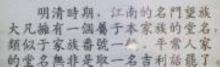 明清時期，江南的名門望族
大凡擁有一個屬于本家族的堂名，
類似于家族番號一般。平常人家
的堂名無非是取一名吉利話罷了